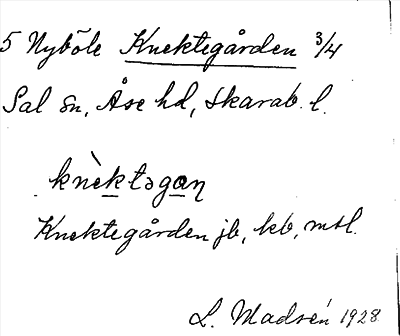 5 Nyböle Knektegården 3/4
Sal sn, Åse hd, Skarab. l.
knèktəgaɳ
Knektegården jb, kb, mtl.
L. Madsén 1928